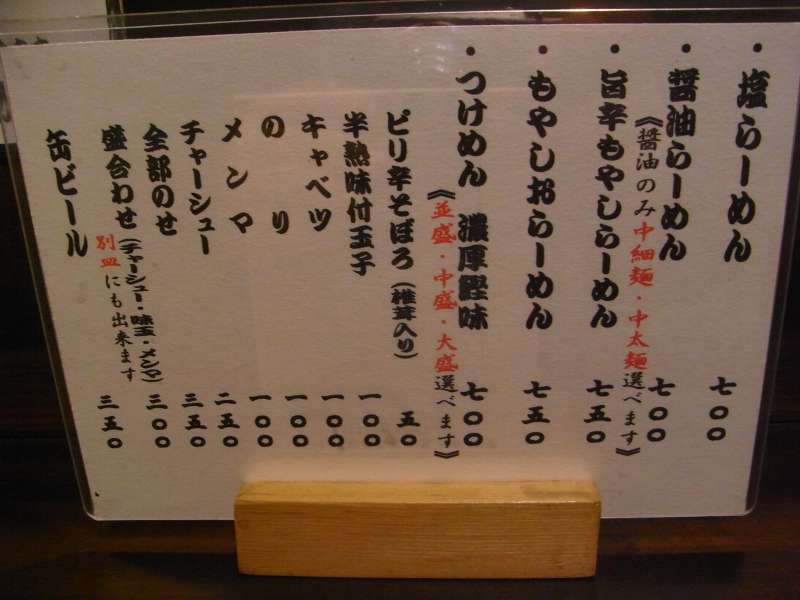 ・塩らーめん 七〇〇
・醤油らーめん 七〇〇
《醤油のみ中細麺・中太麺選べます》
・旨辛もやしらーめん 七五〇
・もやしおらーめん 七五〇
・つけめん 濃厚鰹味 七〇〇
《並盛・中盛・大盛選べます》
ピリ辛そぼろ(椎茸入り) 五〇
半熟味付玉子 一〇〇
キャベツ 一〇〇
のり 一〇〇
メンマ 一〇〇
チャーシュー 二五〇
全部のせ 三五〇
盛合わせ(チャーシュー・味玉・メンマ) 三〇〇
別皿にも出来ます
缶ビール 三五〇